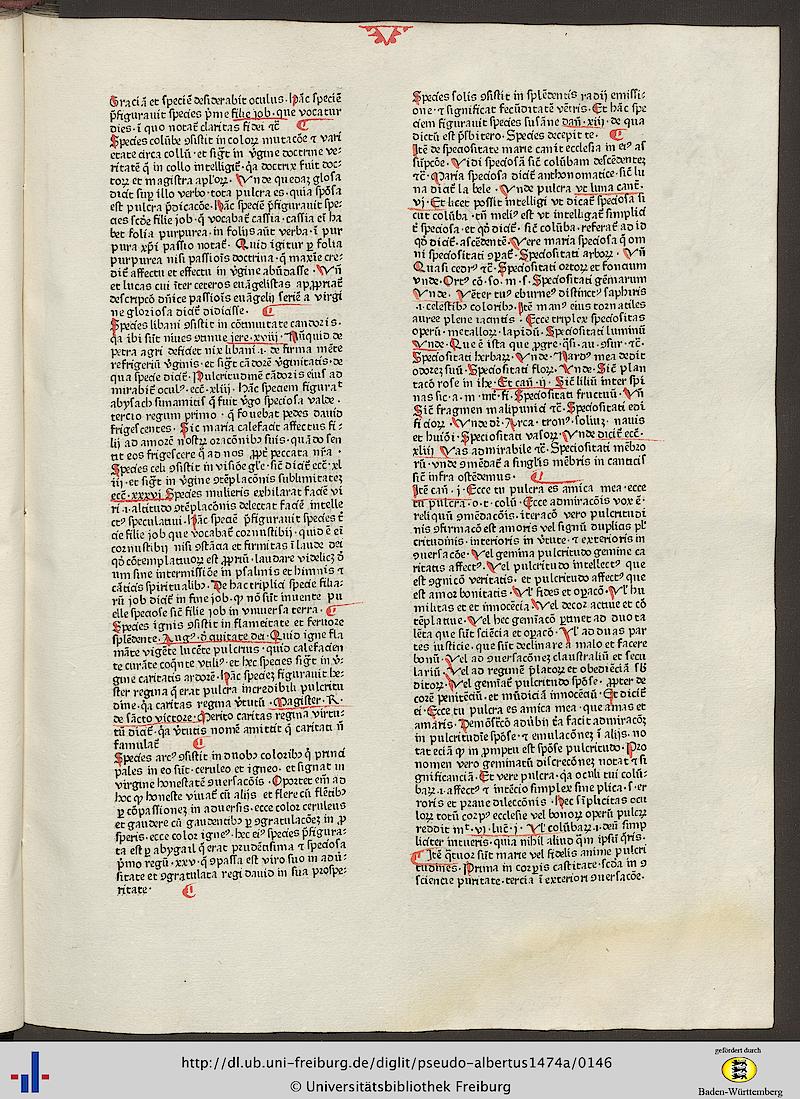 Graciā et speciē desiderabit oculus. hāc speciē
p̄figurauit species p̄me filie job. que vocatur
dies. ī quo notat᷑ claritas fidei ⁊c̄
Species colūbe ꝯsistit in coloꝝ mutacōe ⁊ vari
etate circa collū. et sigt᷑ in v̄gine doctrine ve⸗
ritatē q̄ in collo intelligit᷑. q̄a doctrix fuit doc⸗
toꝝ et magistra apl'oꝝ. Vnde quedaz glosa
dicit suꝑ illo verbo. tota pulcra es. quia spōsa
est pulcra p̄dicacōe. hāc speciē p̄figurauit spe⸗
cies scōe filie job. q̄ vocabat᷑ cassia. cassia em̄ ha
bet folia purpurea. in folijs aūt verba. ī pur
pura xp̄i passio notat᷑. Quid igitur ꝑ folia
purpurea nisi passiōis doctrina. q̄ maxīe cre⸗
dit᷑ affectu et effectu in v̄gine abūdasse. Vn̄
et lucas cui īter ceteros euāgelistas apꝓpriat᷑
descripcō dn̄ice passiōis euāgelij seriē a virgi
ne gloriosa dicit᷑ didicisse.
Species libani ꝯsistit in cōtinuitate candoris.
q̄a ibi sūt niues ꝯtinue jere. xviij. Nūquid de
petra agri deficiet nix libani .i. de firma mēte
refrigeriū v̄ginis. et sigt᷑ cādorē v̄ginitatis. de
qua specie dicit᷑. Pulcritudinē cādoris eius ad
mirabit᷑ ocul⁹. ecc̄. xliij. hāc speciem figurat
abysach sunamitis q̄ fuit v̄go speciosa valde.
tercio regum primo. q̄ fouebat pedes dauid
frigescentes. Sic maria calefacit affectus fi⸗
lij ad amorē nostꝝ oracōnibꝰ suis. quādo sen
tit eos frigescere q̄ ad nos ꝓpt̄ peccata nr̄a.
Species celi ꝯsistit in visiōe gl'e. sic̄ dicit᷑ ecc̄. xl
iij. et sigt᷑ in v̄gine ꝯtēplacōnis sublimitatez
ecc̄. xxxvi. Species mulieris exhilarat faciē vi
ri .i. altitudo ꝯtēplacōnis delectat faciē intelle
ct⁹ speculatiui. hāc speciē p̄figurauit species t̄
cie filie job que vocabat᷑ cornustibij. quid ē em̄
cornustibij nisi ꝯstācia et firmitas ī laude dei
qd̄ cōtemplatiuoꝝ est ꝓpriū. laudare videlicz d̄
um sine intermissiōe in psalmis et himnis ⁊
cāticis spiritualibꝰ. De hac triplici specie filia⸗
rū job dicit᷑ in fine job. q̄ nō sūt inuente pu
elle speciose sic̄ filie job in vniuersa terra.
Species ignis ꝯsistit in flameitate et feruore
splēdente. Aug⁹. d̄ ciuitate dei. Quid igne fla
māte vigēte lucēte pulcrius. quid calefacien
te curāte coq̄nte vtili⁹. et hec species sigt᷑ in v̄⸗
gine caritatis ardorē. hāc speciez figurauit he⸗
ster regina q̄ erat pulcra incredibili pulcritu
dine. q̄a caritas regina v̄tutū. Magister. R.
de sācto victore. Merito caritas regina virtu⸗
tū dicit᷑. q̄a v̄tutis nomē amittit q̄ caritati n̄
famulat᷑
Species arc⁹ ꝯsistit in duobꝰ coloribꝰ q̄ princi
pales in eo sūt. ceruleo et igneo. et signat᷑ in
virgine honestatē ꝯuersacōis. Oportet em̄ ad
hoc q̄ honeste viuat᷑ cū alijs et flere cū flētibꝰ
ꝑ cōpassionez in aduersis. ecce color ceruleus
et gaudere cū gaudentibꝰ ꝑ ꝯgratulacōez in ꝓ
speris. ecce color igne⁹. hec em̄ species p̄figura⸗
ta est ꝑ abygail q̄ erat prudētissima ⁊ speciosa
p̄mo regū. xxv. q̄ ꝯpassa est viro suo in adū⸗
sitate et ꝯgratulata regi dauid in sua prospe⸗
ritate.
Species solis ꝯsistit in splēdentis radij emissi⸗
one. ⁊ significat fecūditatē vētris. Et hāc spe
ciem figurauit species susāne dan̄. xiij. de qua
dictū est p̄sbitero. Species decepit te.
Itē de speciositate marie canit ecclesia in ei⁹ as
sūpcōe. Vidi speciosā sic̄ colūbam descēdentez
⁊c̄. Maria speciosa dicit᷑ anthonomatice. sic̄ lu
na dicit᷑ la bele. Vnde pulcra vt luna cant̄.
vj. Et licet possit intelligi vt dicat᷑ speciosa si
cut colūba. tn̄ meli⁹ est vt intelligat᷑ simplicit̄
speciosa. et qd̄ dicit᷑. sic̄ colūba. referat᷑ ad id
qd̄ dicit᷑. ascēdentē. Vere maria speciosa q̄ om
ni speciositati ꝯpat᷑. Speciositati arboꝝ. Vn̄
Quasi cedr⁹ ⁊c̄. Speciositati ortoꝝ et foncium
vnde. Ort⁹ cō. so. m. s. Speciositati gēmarum
Vnde. Vēter tu⁹ eburne⁹ distinct⁹ saphiris
.i. celestibꝰ coloribꝰ. Itē man⁹ eius tornatiles
auree plene iacintis. Ecce triplex speciositas
operū. metalloꝝ. lapidū. Speciositati luminū
Vnde. Que ē ista que ꝓgre. q̄si. au. ꝯsur. ⁊c̄.
Speciositati herbaꝝ. Vnde. Nard⁹ mea dedit
odorez suū. Speciositati floꝝ. Vnde. Sic̄ plan
tacō rose in ihe. Et can̄. ij. Sic̄ liliū inter spi
nas sic. a. m. int̄. fi. Speciositati fructuū. Vn̄
Sic̄ fragmen malipunici ⁊c̄. Speciositati edi
ficioꝝ. Vnde dr̄. Arca. tron⁹. soliuz. nauis
et huiōi. Speciositati vasoꝝ. Vnde dicit᷑ ecc̄.
xliij. Vas admirabile ⁊c̄. Speciositati mēbro
rū. vnde ꝯmēdat᷑ a singlis mēbris in canticis
sic̄ infra ostēdemus.
Itē can̄. j. Ecce tu pulcra es amica mea. ecce
tu pulcra. o. t. colū. Ecce admiracōis vox ē.
reliquū ꝯmēdacōis. iteracō vero pulcritudi
nis ꝯfirmacō est amoris vel signū duplicis pl'
critudinis. interioris in v̄tute. ⁊ exterioris in
ꝯuersacōe. Vel gemina pulcritudo gemine ca
ritatis affect⁹. Vel pulcritudo intellect⁹ que
est ꝯgnicō veritatis. et pulcritudo affect⁹ que
est amor bonitatis. Vl' fides et oꝑacō. Vl' hu
militas et et innocēcia. Vel decor actiue et cō
tēplatiue. Vel hec gemīacō ꝑtinet ad duo ta
lēta que sūt sciēcia et oꝑacō. Vl' ad duas par
tes iusticie. que sūt declinare a malo et facere
bonū. Vel ad ꝯuersacōnez claustraliū et secu
lariū. Vel ad regimē p̄latoꝝ et obediēciā sb̄
ditoꝝ. Vel gemīat᷑ pulcritudo spōse. ꝓpter de
corē penitēciū. et mūdiciā innocētiū. Et dicit᷑
ei. Ecce tu pulcra es amica mea. que amas et
amaris. Demōstrcō adūbij t̄a facit admiracōz
in pulcritudīe spōse. ⁊ emulacōnez ī alijs. no
tat eciā q̄ in ꝓmptu est spōse pulcritudo. Pro
nomen vero geminatū discrecōnez notat ⁊ si
gnificanciā. Et vere pulcra. q̄a oculi tui colū⸗
baꝝ .i. affect⁹ ⁊ intēcio simplex sine plica .s. er
roris et praue dileccōnis. Hec sīplicitas ocu
loꝝ totū corp⁹ ecclesie vel bonoꝝ operū pulcꝝ
reddit mt̄. vj. luc̄. j. Vl' colūbaꝝ .i. deū simp
liciter intueris. quia nihil aliud q̄m ip̄sū q̄ris.
Itē q̄tuor sūt marie vel fidelis anime pulcri
tudines. Prima in corꝑis castitate. scda in ꝯ
sciencie puritate. tercia ī exteriori ꝯuersacōe.
http://dl.ub.uni-freiburg.de/diglit/pseudo-albertus1474a/0146
© Universitätsbibliothek Freiburg
gefördert durch
Baden-Württemberg